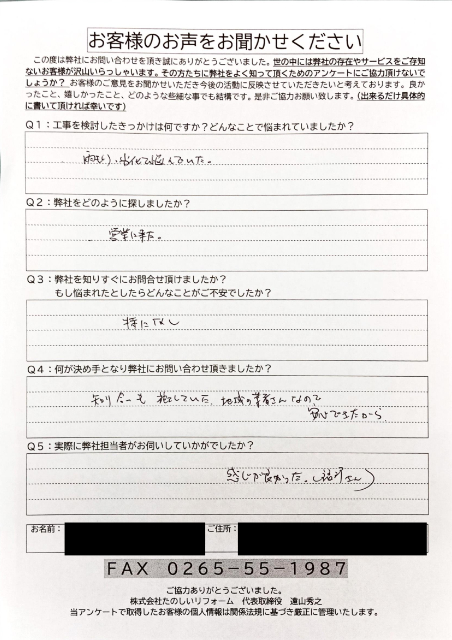 お客様のお声をお聞かせください
この度は弊社にお問い合わせを頂き誠にありがとうございました。世の中には弊社の存在やサービスをご存知
ないお客様が沢山いらっしゃいます。その方たちに弊社をよく知って頂くためのアンケートにご協力頂けないで
しょうか？ お客様のご意見をお聞かせいただき今後の活動に反映させていただきたいと考えております。良か
ったこと、嬉しかったこと、どのような些細な事でも結構です。是非ご協力お願い致します。(出来るだけ具体的
に書いて頂ければ幸いです)
Q1：工事を検討したきっかけは何ですか？どんなことで悩まれていましたか？
劣化で悩んでいた。
Q2：弊社をどのように探しましたか？
営業に来た。
Q3：弊社を知りすぐにお問合せ頂けましたか？
もし悩まれたとしたらどんなことがご不安でしたか？
特になし
Q4：何が決め手となり弊社にお問い合わせ頂きましたか？
知り合いも していた。地域の業者さんなので
安心できたから。
Q5：実際に弊社担当者がお伺いしていかがでしたか？
感じが良かった。
お名前：
ご住所：
FAX 0265-55-1987
ご協力ありがとうございました。
株式会社たのしいリフォーム 代表取締役 遠山秀之
当アンケートで取得したお客様の個人情報は関係法規に基づき厳正に管理いたします。